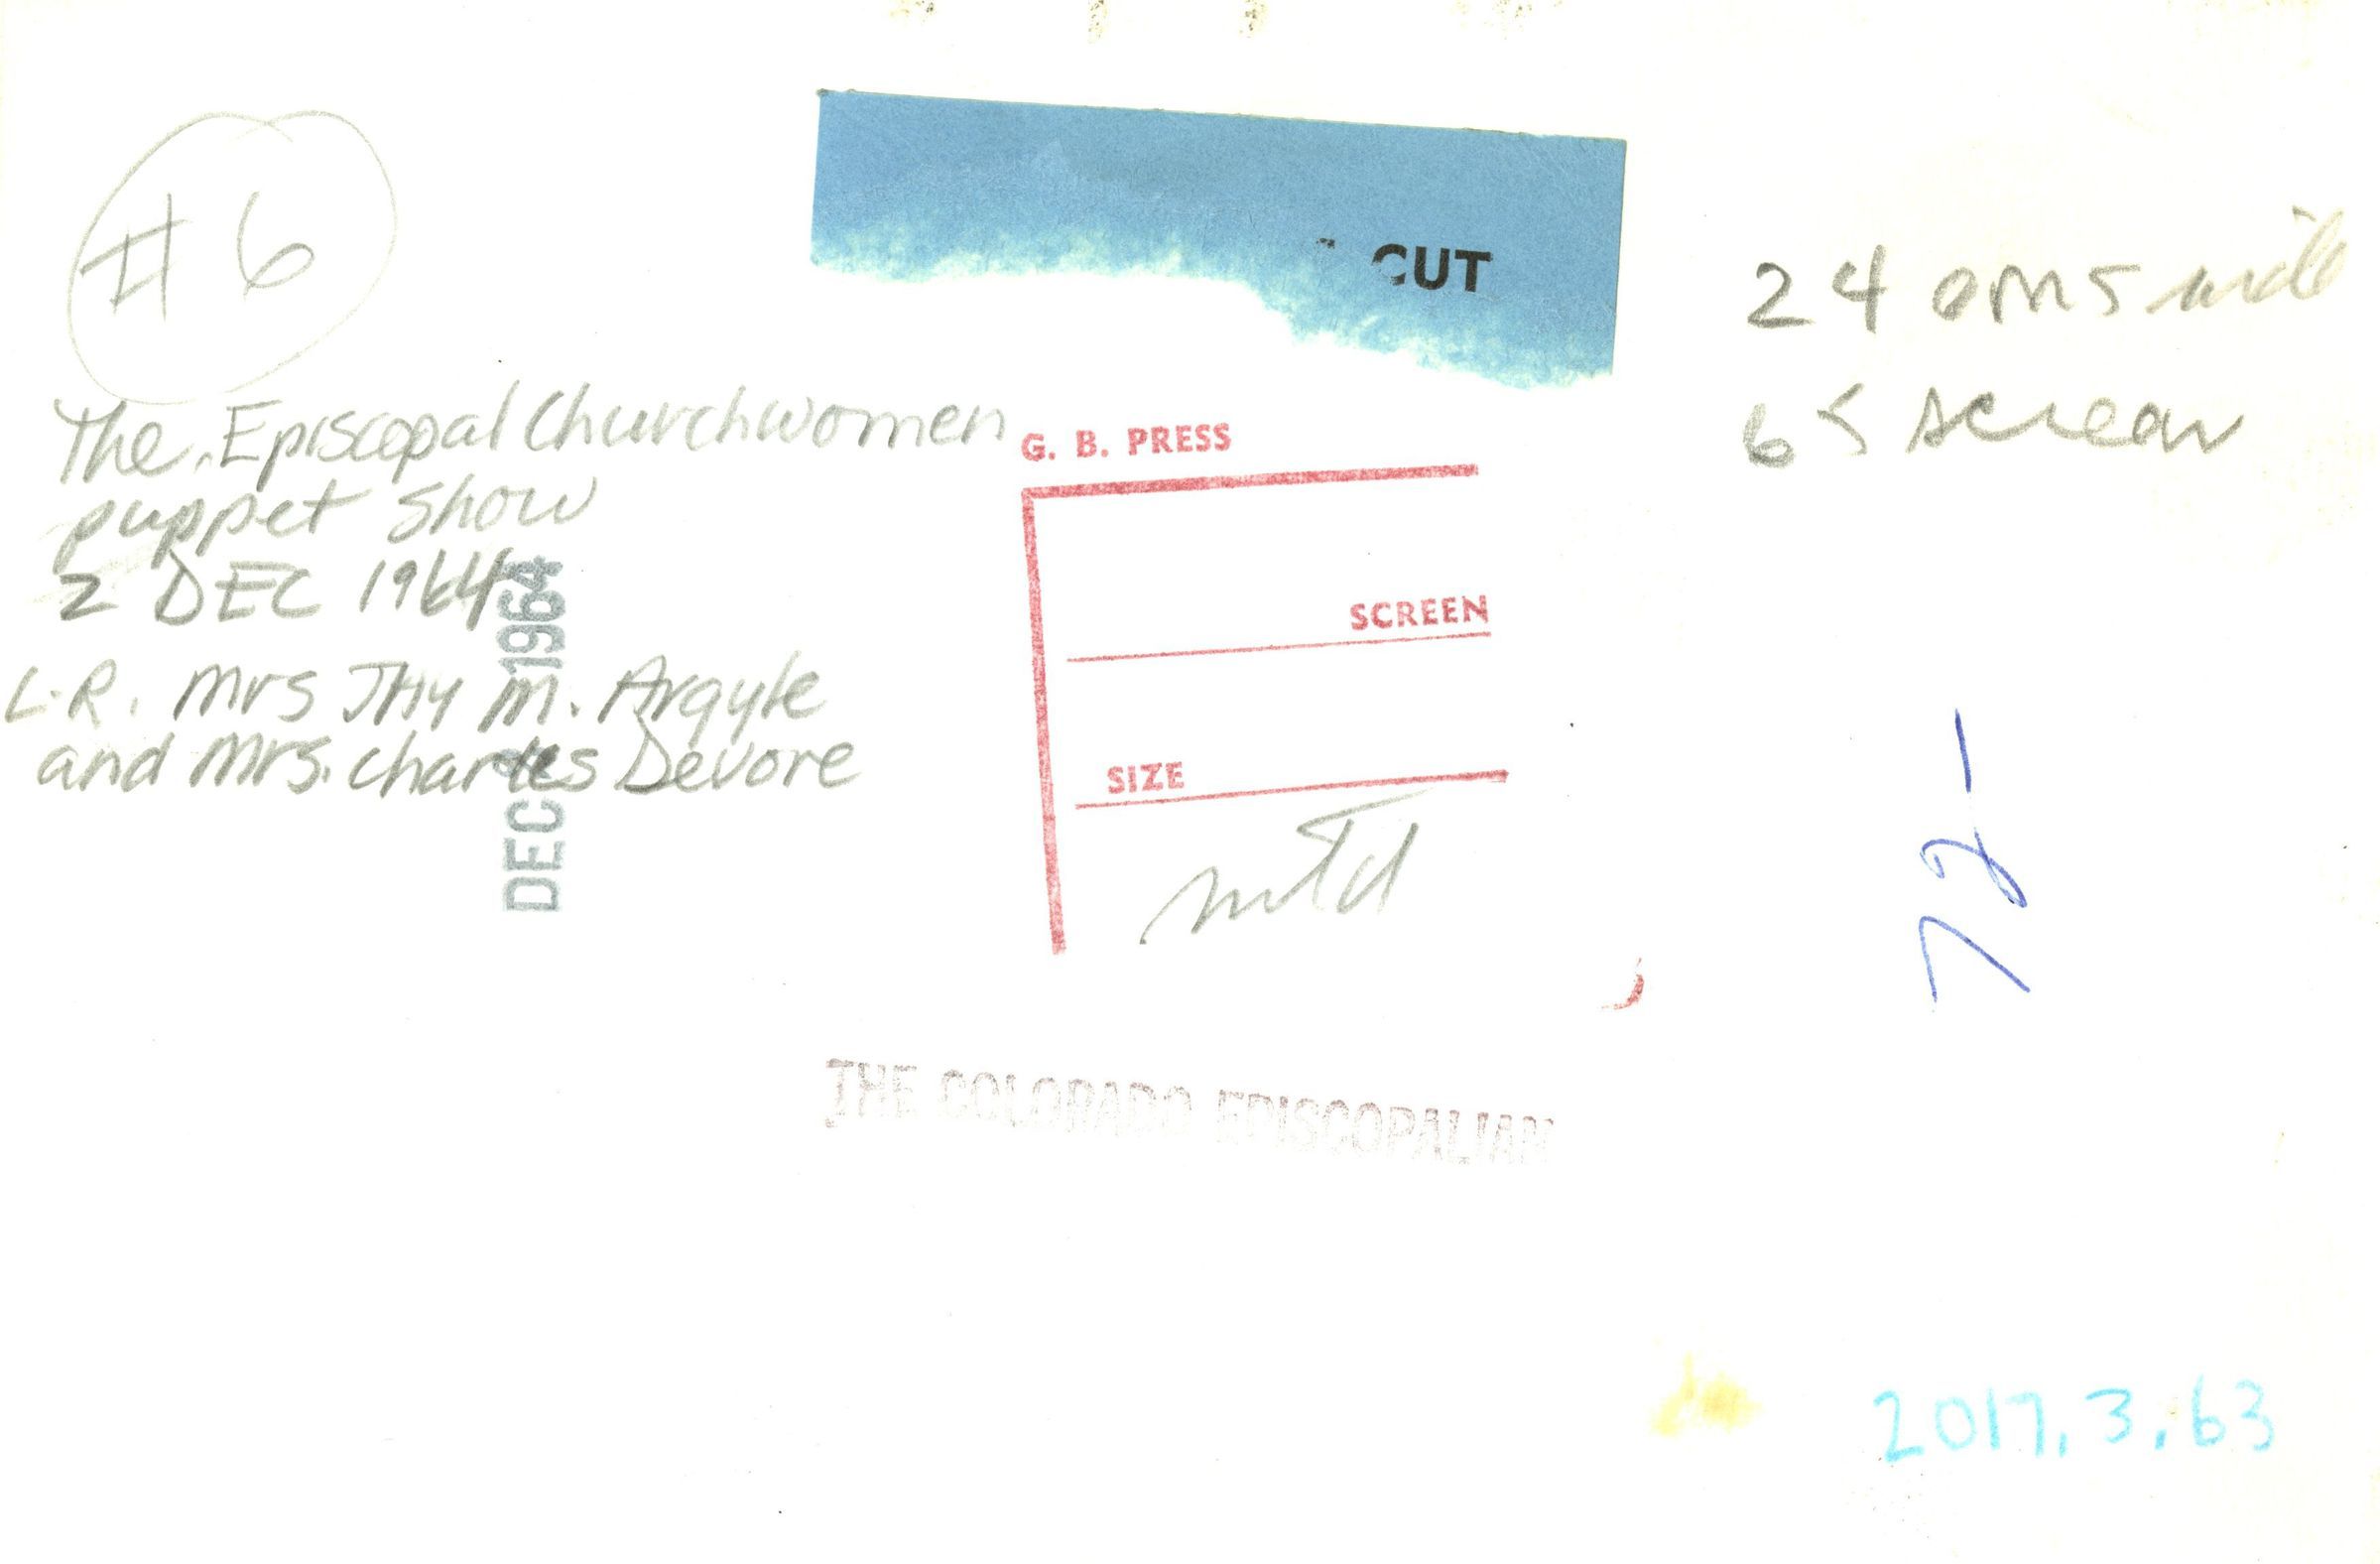 #6
The Episcopal Churchwomen
puppet show
2 DEC 1964
L.R. Mrs Jay M. Argyle
and Mrs. Charles Devore
DEC 1964
CUT
G. B. PRESS
SCREEN
SIZE
THE COLORADO EPISCOPALIAN
24 ems wide
65 screen
2017.3.63